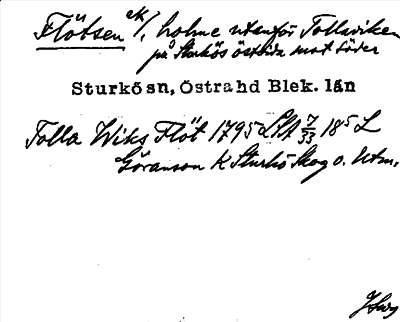 Flötsen ek/, holme utanför Tollaviken
på Sturkös östsida mot söder
Sturkö sn, Östra hd Blek. län
Tolla Wiks Flöt 1795 LSA 7/33 18⁵ L
Göranson K Sturkö Skog o. Utm.